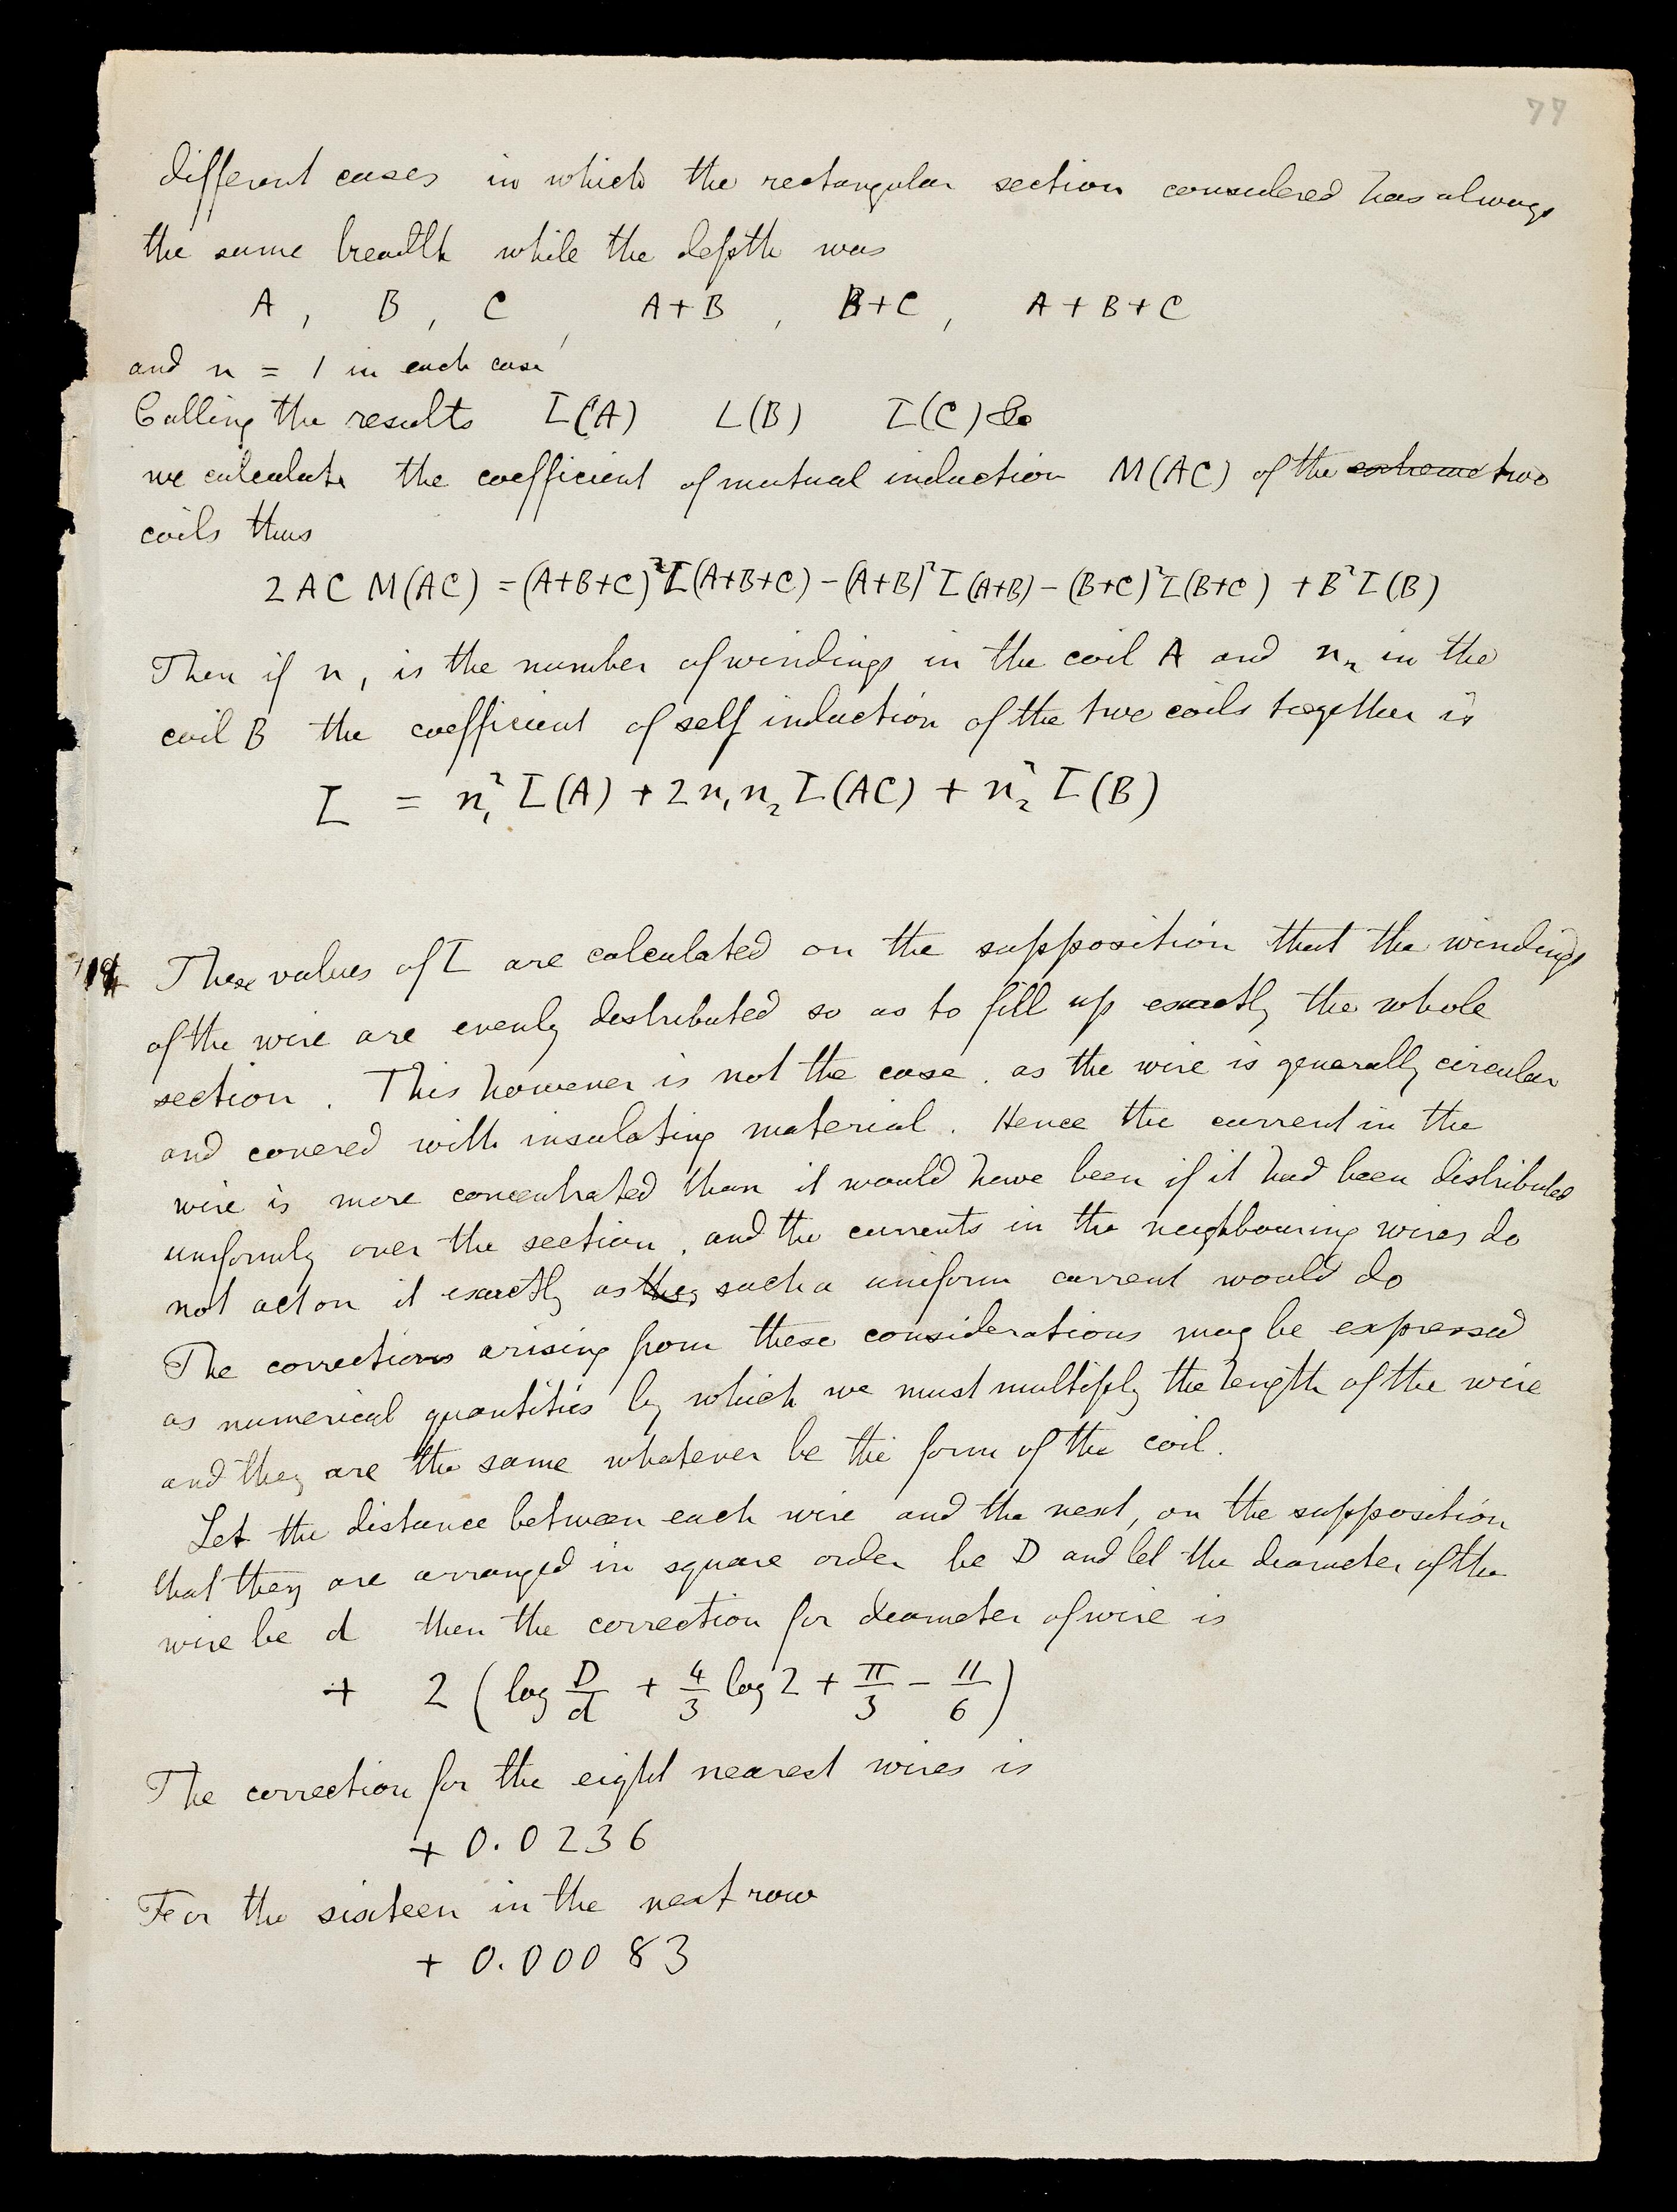 77
different cases in which the rectangular section considered has always
the same breadth while the depth was
A , B , C , A+B , B+C , A+B+C
and n = 1 in each case
Calling the results L(A) L(B) L(C) &c
we calculate the coefficient of mutual induction M(AC) of the extreme two
coils thus
2 AC M(AC) = (A+B+C)² L(A+B+C) − (A+B)² L(A+B) − (B+C)² L(B+C) + B² L(B)
Then if n₁ is the number of windings in the coil A and n₂ in the
coil B the coefficient of self induction of the two coils together is
L = n₁² L(A) + 2 n₁ n₂ L(AC) + n₂² L(B)
These values of L are calculated on the supposition that the windings
of the wire are evenly distributed so as to fill up exactly the whole
section . This however is not the case . as the wire is generally circular
and covered with insulating material . Hence the current in the
wire is more concentrated than it would have been if it had been distributed
uniformly over the section , and the currents in the neighbouring wires do
not act on it exactly as they such a uniform current would do
The corrections arising from these considerations may be expressed
as numerical quantities by which we must multiply the length of the wire
and they are the same whatever be the form of the coil .
Let the distance between each wire and the next , on the supposition
that they are arranged in square order be D and let the diameter of the
wire be d then the correction for diameter of wire is
+ 2 ( log D/d + 4/3 log 2 + π/3 − 11/6 )
The correction for the eight nearest wires is
+ 0.0236
For the sixteen in the next row
+ 0.00083